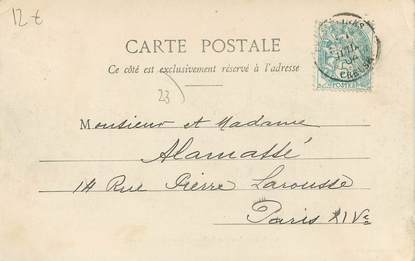 12 €
CARTE POSTALE
Ce côté est exclusivement réservé à l'adresse
23
Monsieur et Madame
Alamassé
14 Rue Pierre Larousse
Paris XIVe
POSTES
CREUSE